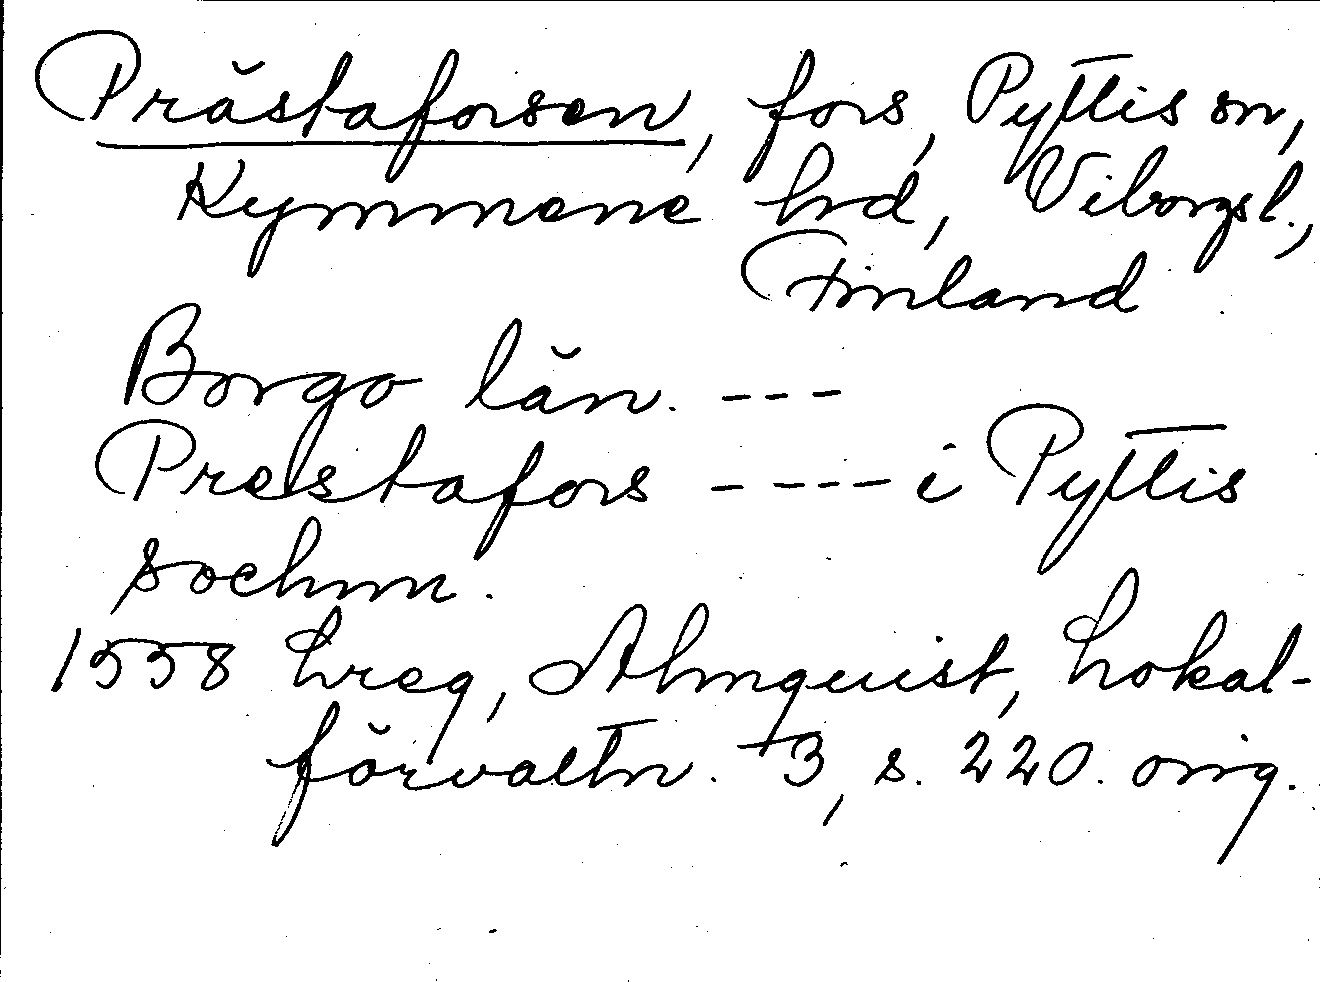 Prästaforsen, fors, Pyttis sn,
Kymmene hrd, Viborgs l.,
Finland
Borgo län. ---
Prestafors ---- i Pyttis
sochnn.
1558 hreg, Almquist, Lokal-
förvaltn. 3, s. 220. orig.